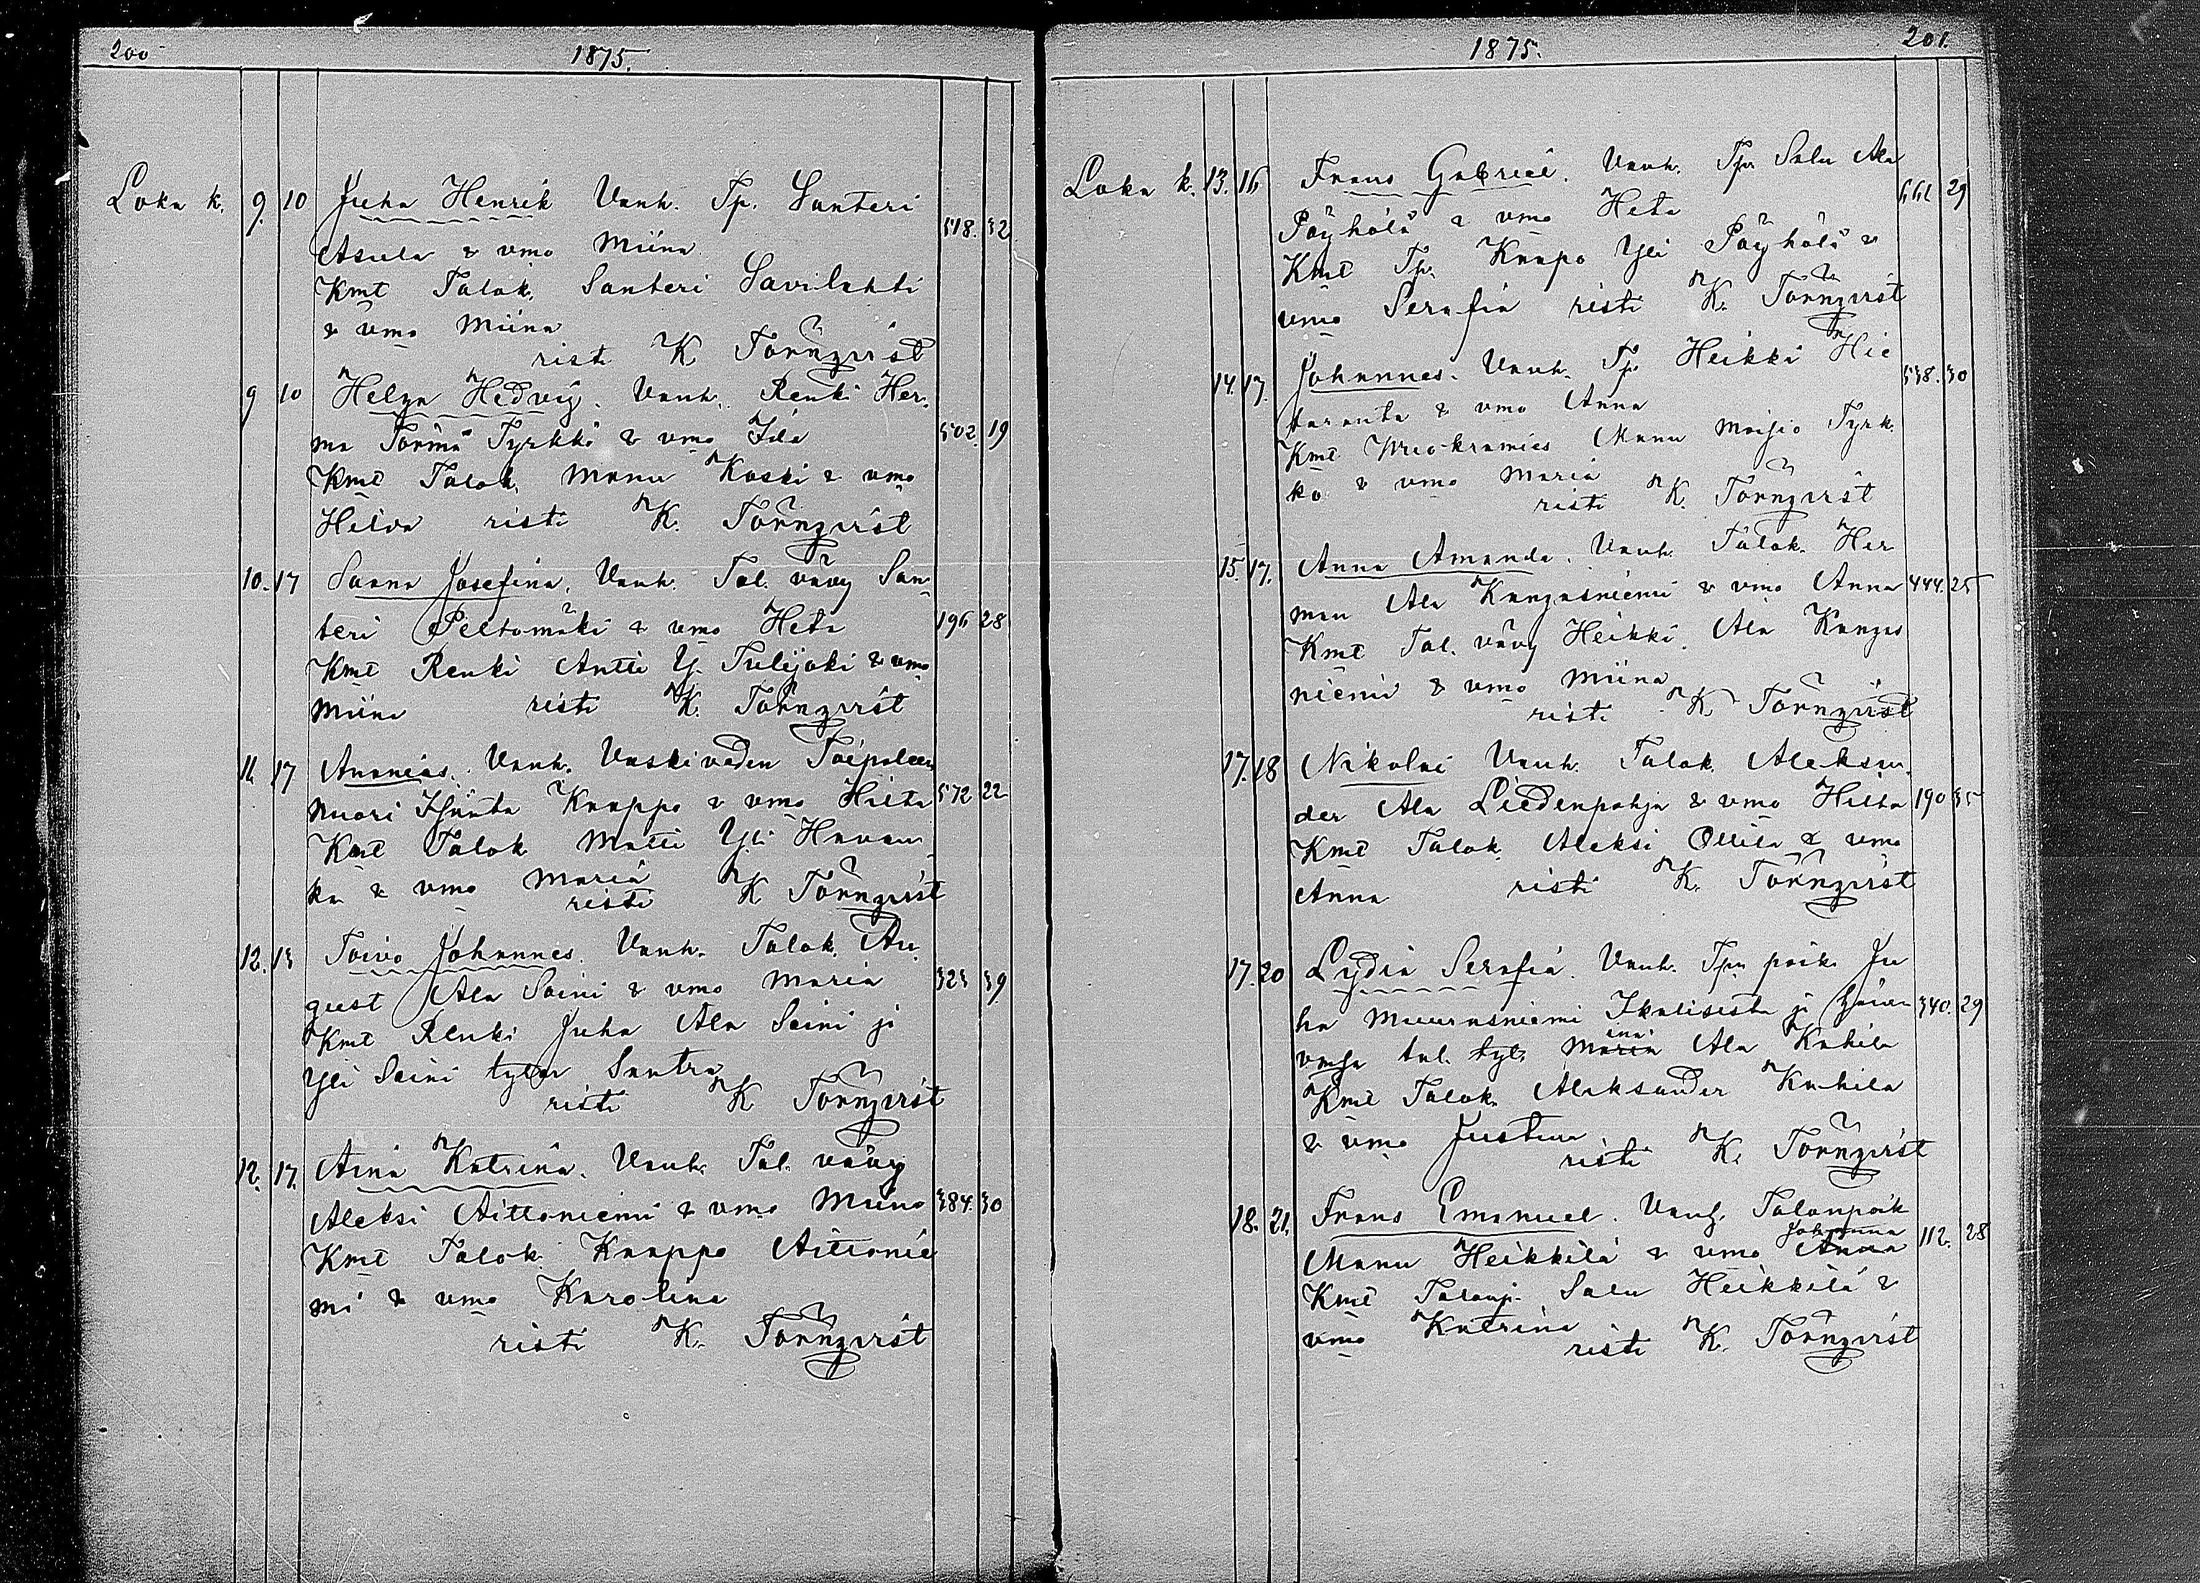 200
1875.
Loka k. 9. 10 Juha Henrik Vanh. Tp. Santeri
Asula & vmo Miina 518. 32
Kmt Talok. Santeri Savilahti
& vmo Miina
risti K. Törnqvist
9 10 Helga Hedvig. Vanh. Renki Her-
ma Törmä Tyrkkö & vmo Ida 502. 19
Kmt Talok. Manu Koski & vmo
Helva risti K. Törnqvist
10. 17 Sanna Josefina. Vanh. Tal. vävy San-
teri Peltomäki & vmo Heta 196 28
Kmt Renki Antti Y. Tulijoki & vmo
Miina risti K. Törnqvist
11. 17 Ananias. Vanh. Vaskiveden Taipaleen
nuori Isäntä Kaappo & vmo Hilta 572 22
Kmt Talok Matti Yli Havan-
ka & vmo Maria
risti K Törnqvist
12. 13 Toivo Johannes. Vanh. Talok. Au-
gust Ala Soini & vmo Maria 323 39
Kmt Renki Juha Ala Soini ja
Yli Soini tytär Santra
risti K Törnqvist
12. 17. Aina Katrina. Vanh. Tal. vävy
Aleksi Aittoniemi & vmo Miina 384. 30
Kmt Talok. Kaappo Aittonie
mi & vmo Karolina
risti K. Törnqvist
1875.
201.
Loka k. 13. 16 Frans Gabriel. Vanh. Tp. Salu Ala
Pöyhölä & vmo Heta 661 29
Kmt Tp. Kaapo Yli Pöyhölä &
vmo Serafia risti K. Törnqvist
14. 17. Johannes. Vanh. Tp. Heikki Hie
taranta & vmo Anna 538. 30
Kmt Vuokramies Manu Moisio Tyrk-
kö & vmo Maria
risti K. Törnqvist
15. 17. Anna Amanda. Vanh. Talok. Her
man Ala Kangasniemi & vmo Anna 444. 25
Kmt Tal. vävy Heikki Ala Kangas
niemi & vmo Miina
risti K Törnqvist
17. 18 Nikolai Vanh. Talok. Aleksan-
der Ala Liedenpohja & vmo Hilta 190 35
Kmt Talok. Aleksi Ollila & vmo
Anna risti K. Törnqvist
17. 20 Lydia Serafia. Vanh. Tpn poik. Ju
ha Muurasniemi Ikalisista ja 340. 29
vmsa tal. tyt. Maria Ala Kahila
Kmt Talok. Aleksander Kahila
& vmo Justina
risti K. Törnqvist
18. 21. Frans Emanuel. Vanh. Talonpoik
Johanna
Manu Heikkilä & vmo Anna 112. 28
Kmt Talonp. Salu Heikkilä &
vmo Katrina
risti K. Törnqvist